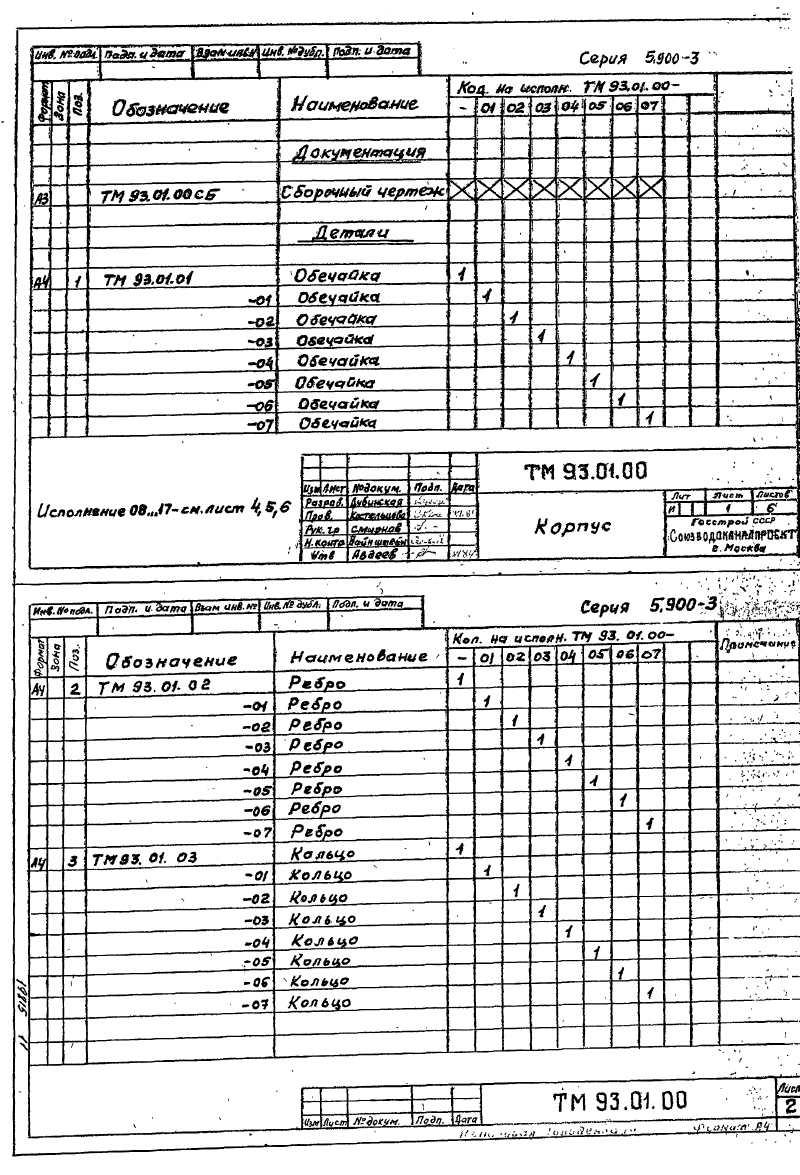 Инв. № подл. Подп. и дата Взам инв.№ Инв. № дубл. Подп. и дата
Серия 5.900-3
Формат Зона Поз. Обозначение Наименование Кол. на исполн. ТМ 93.01.00-
- 01 02 03 04 05 06 07
Документация
А3 ТМ 93.01.00СБ Сборочный чертеж X X X X X X X X
Детали
А4 1 ТМ 93.01.01 Обечайка 1
-01 Обечайка 1
-02 Обечайка 1
-03 Обечайка 1
-04 Обечайка 1
-05 Обечайка 1
-06 Обечайка 1
-07 Обечайка 1
Исполнение 08...17-см. лист 4,5,6
Изм Лист № докум. Подп. Дата
Разраб. Дубинская
Пров. Костельцева
Рук. гр Смирнов
Н. контр Вайнштейн
Утв Авдеев
ТМ 93.01.00
Корпус
Лит Лист Листов
И 1 6
Госстрой СССР
Союзводоканалпроект
г. Москва
Инв. № подл. Подп. и дата Взам инв. № Инв. № дубл. Подп. и дата
Серия 5.900-3
Формат Зона Поз. Обозначение Наименование Кол. на исполн. ТМ 93.01.00- Примечание
- 01 02 03 04 05 06 07
А4 2 ТМ 93.01.02 Ребро 1
-01 Ребро 1
-02 Ребро 1
-03 Ребро 1
-04 Ребро 1
-05 Ребро 1
-06 Ребро 1
-07 Ребро 1
А4 3 ТМ 93.01.03 Кольцо 1
-01 Кольцо 1
-02 Кольцо 1
-03 Кольцо 1
-04 Кольцо 1
-05 Кольцо 1
-06 Кольцо 1
-07 Кольцо 1
Изм Лист № докум. Подп. Дата
ТМ 93.01.00
Лист
2
Формат А4